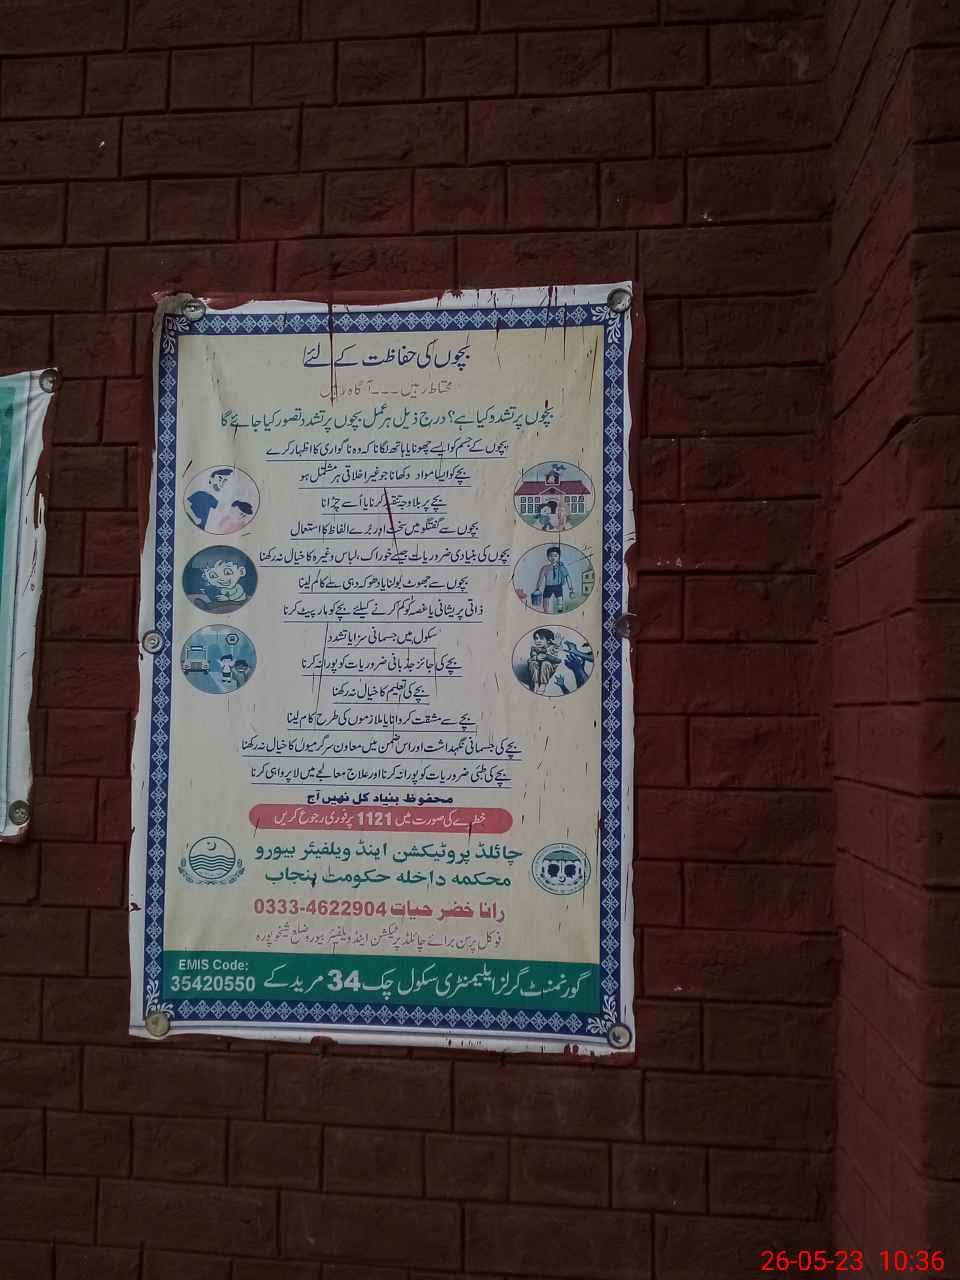 بچوں کی حفاظت کے لئے
محتاط رہیں ۔۔۔ آگاہ رہیں
بچوں پر تشدد کیا ہے؟ درج ذیل ہر عمل بچوں پر تشدد تصور کیا جائے گا
بچوں کے جسم کو ایسے چھونا یا ہاتھ لگانا کہ وہ ناگواری کا اظہار کرے
بچے کو ایسا مواد دکھانا جو غیر اخلاقی ہر مشتمل ہو
بچے پر بلاوجہ تنقید کرنا یا اُسے چڑانا
بچوں سے گفتگو میں سخت اور بُرے الفاظ کا استعمال
بچوں کی بنیادی ضروریات جیسے خوراک، لباس وغیرہ کا خیال نہ رکھنا
بچوں سے جھوٹ بولنا یا دھوکہ دہی سے کام لینا
ذاتی پریشانی یا غصہ کو کم کرنے کیلئے بچے کو مار پیٹ کرنا
سکول میں جسمانی سزا یا تشدد
بچے کی جائز جذباتی ضروریات کو پورا نہ کرنا
بچے کی تعلیم کا خیال نہ رکھنا
بچے سے مشقت کروانا یا ملازموں کی طرح کام لینا
بچے کی جسمانی نگہداشت اور اس ضمن میں معاون سرگرمیوں کا خیال نہ رکھنا
بچے کی طبّی ضروریات کو پورا نہ کرنا اور علاج معالجے میں لاپرواہی کرنا
محفوظ بنیاد کل نھیں آج
خطرے کی صورت میں 1121 پر فوری رجوع کریں
چائلڈ پروٹیکشن اینڈ ویلفیئر بیورو
محکمہ داخلہ حکومت پنجاب
رانا خضر حیات 0333-4622904
فوکل پرسن برائے چائلڈ پروٹیکشن اینڈ ویلفیئر بیورو ضلع شیخوپورہ
گورنمنٹ گرلز ایلیمنٹری سکول چک 34 مریدکے
EMIS Code:
35420550
26-05-23 10:36